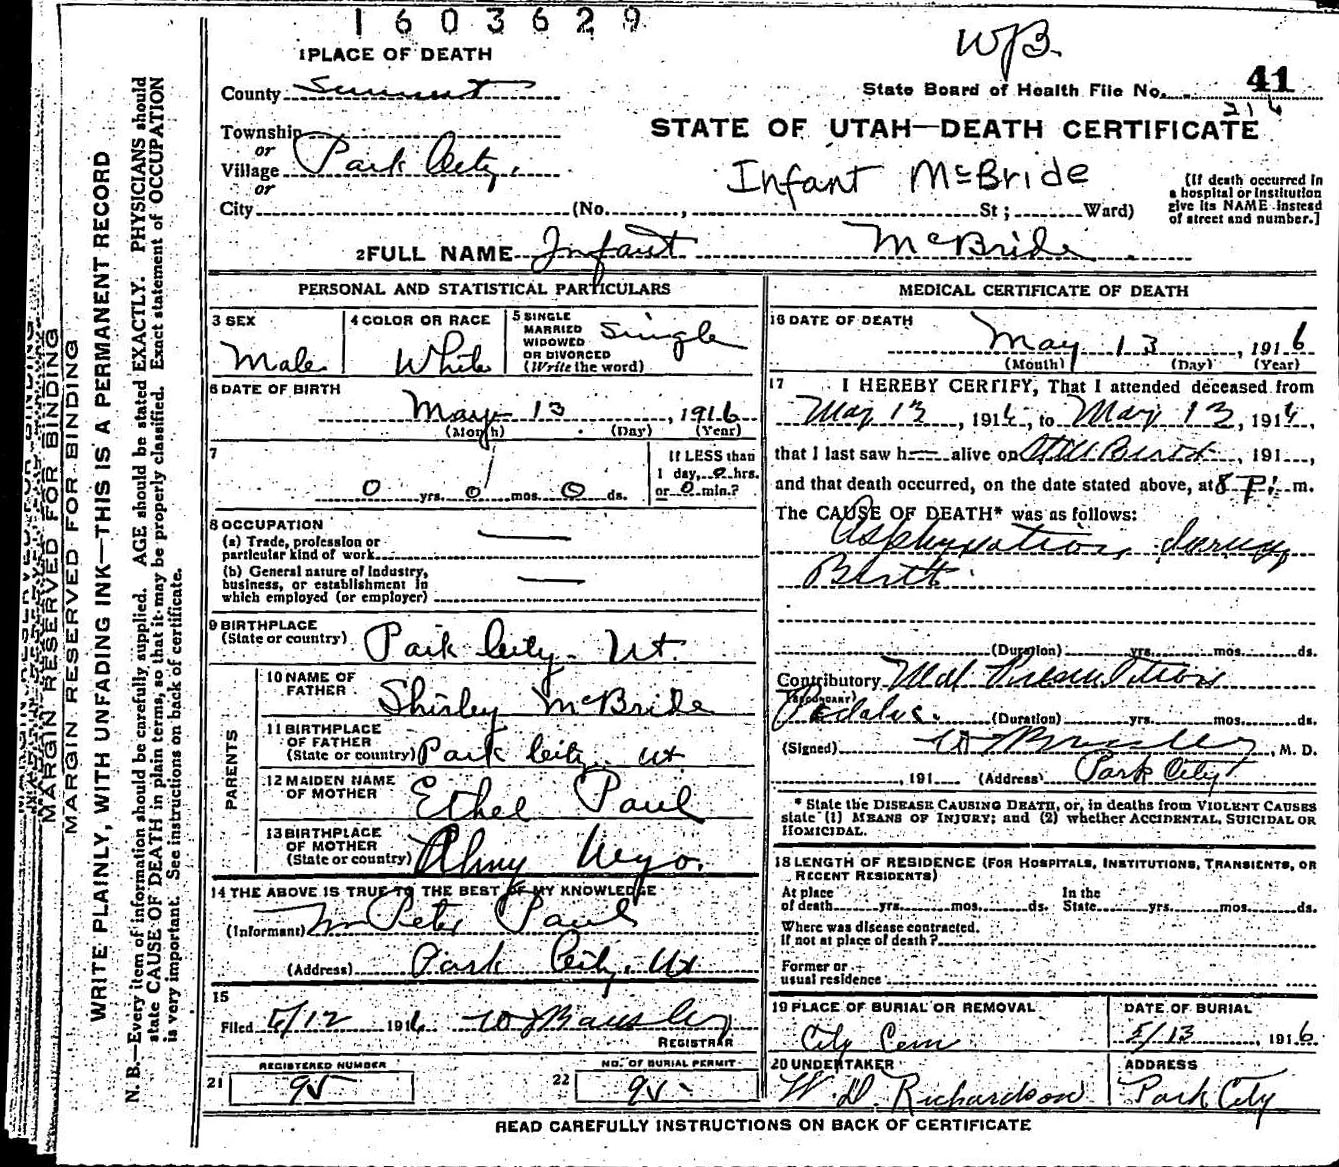 1603629
W/B.
1 PLACE OF DEATH
State Board of Health File No. 41
216
County Summit
STATE OF UTAH—DEATH CERTIFICATE
Township
or
Village Park City.
or
Infant McBride
(If death occurred in
a hospital or institution
give its NAME instead
of street and number.]
City (No. , St ; Ward)
2 FULL NAME Infant McBride
PERSONAL AND STATISTICAL PARTICULARS
3 SEX
Male
4 COLOR OR RACE
White
5 SINGLE
MARRIED
WIDOWED
OR DIVORCED
(Write the word)
Single
6 DATE OF BIRTH
May 13, 1916
(Month) (Day) (Year)
7
0 yrs. 0 mos. 0 ds.
If LESS than
1 day, 0 hrs.
or 0 min.?
8 OCCUPATION
(a) Trade, profession or
particular kind of work
(b) General nature of industry,
business, or establishment in
which employed (or employer)
9 BIRTHPLACE
(State or country) Park City. Ut.
PARENTS
10 NAME OF
FATHER Shirley McBride
11 BIRTHPLACE
OF FATHER
(State or country) Park City. Ut
12 MAIDEN NAME
OF MOTHER Ethel Paul
13 BIRTHPLACE
OF MOTHER
(State or country) Almy Wyo.
14 THE ABOVE IS TRUE TO THE BEST OF MY KNOWLEDGE
(Informant) Peter Paul
(Address) Park City. Ut
15
Filed 5/12 1916
REGISTRAR
REGISTERED NUMBER
21 95
NO. OF BURIAL PERMIT
22 95
MEDICAL CERTIFICATE OF DEATH
16 DATE OF DEATH
May 13, 1916
(Month) (Day) (Year)
17 I HEREBY CERTIFY, That I attended deceased from
May 13, 1916, to May 13, 1916,
that I last saw h— alive on Still Birth, 191 ,
and that death occurred, on the date stated above, at 8 P. m.
The CAUSE OF DEATH* was as follows:
Asphyxiation during
Birth.
(Duration) yrs. mos. ds.
Contributory Mal Presentation
(SECONDARY)
Pedalic. (Duration) yrs. mos. ds.
(Signed) , M. D.
, 191 (Address) Park City
* State the DISEASE CAUSING DEATH, or, in deaths from VIOLENT CAUSES
state (1) MEANS OF INJURY; and (2) whether ACCIDENTAL, SUICIDAL OR
HOMICIDAL.
18 LENGTH OF RESIDENCE (FOR HOSPITALS, INSTITUTIONS, TRANSIENTS, OR
RECENT RESIDENTS)
At place
of death yrs. mos. ds.
In the
State yrs. mos. ds.
Where was disease contracted.
if not at place of death?
Former or
usual residence
19 PLACE OF BURIAL OR REMOVAL
City Cem
DATE OF BURIAL
5/13, 1916
20 UNDERTAKER
W. D. Richardson
ADDRESS
Park City
READ CAREFULLY INSTRUCTIONS ON BACK OF CERTIFICATE
MARGIN RESERVED FOR BINDING
MARGIN RESERVED FOR BINDING
WRITE PLAINLY, WITH UNFADING INK—THIS IS A PERMANENT RECORD
N. B.—Every item of information should be carefully supplied. AGE should be stated EXACTLY. PHYSICIANS should
state CAUSE OF DEATH in plain terms, so that it may be properly classified. Exact statement of OCCUPATION
is very important. See instructions on back of certificate.